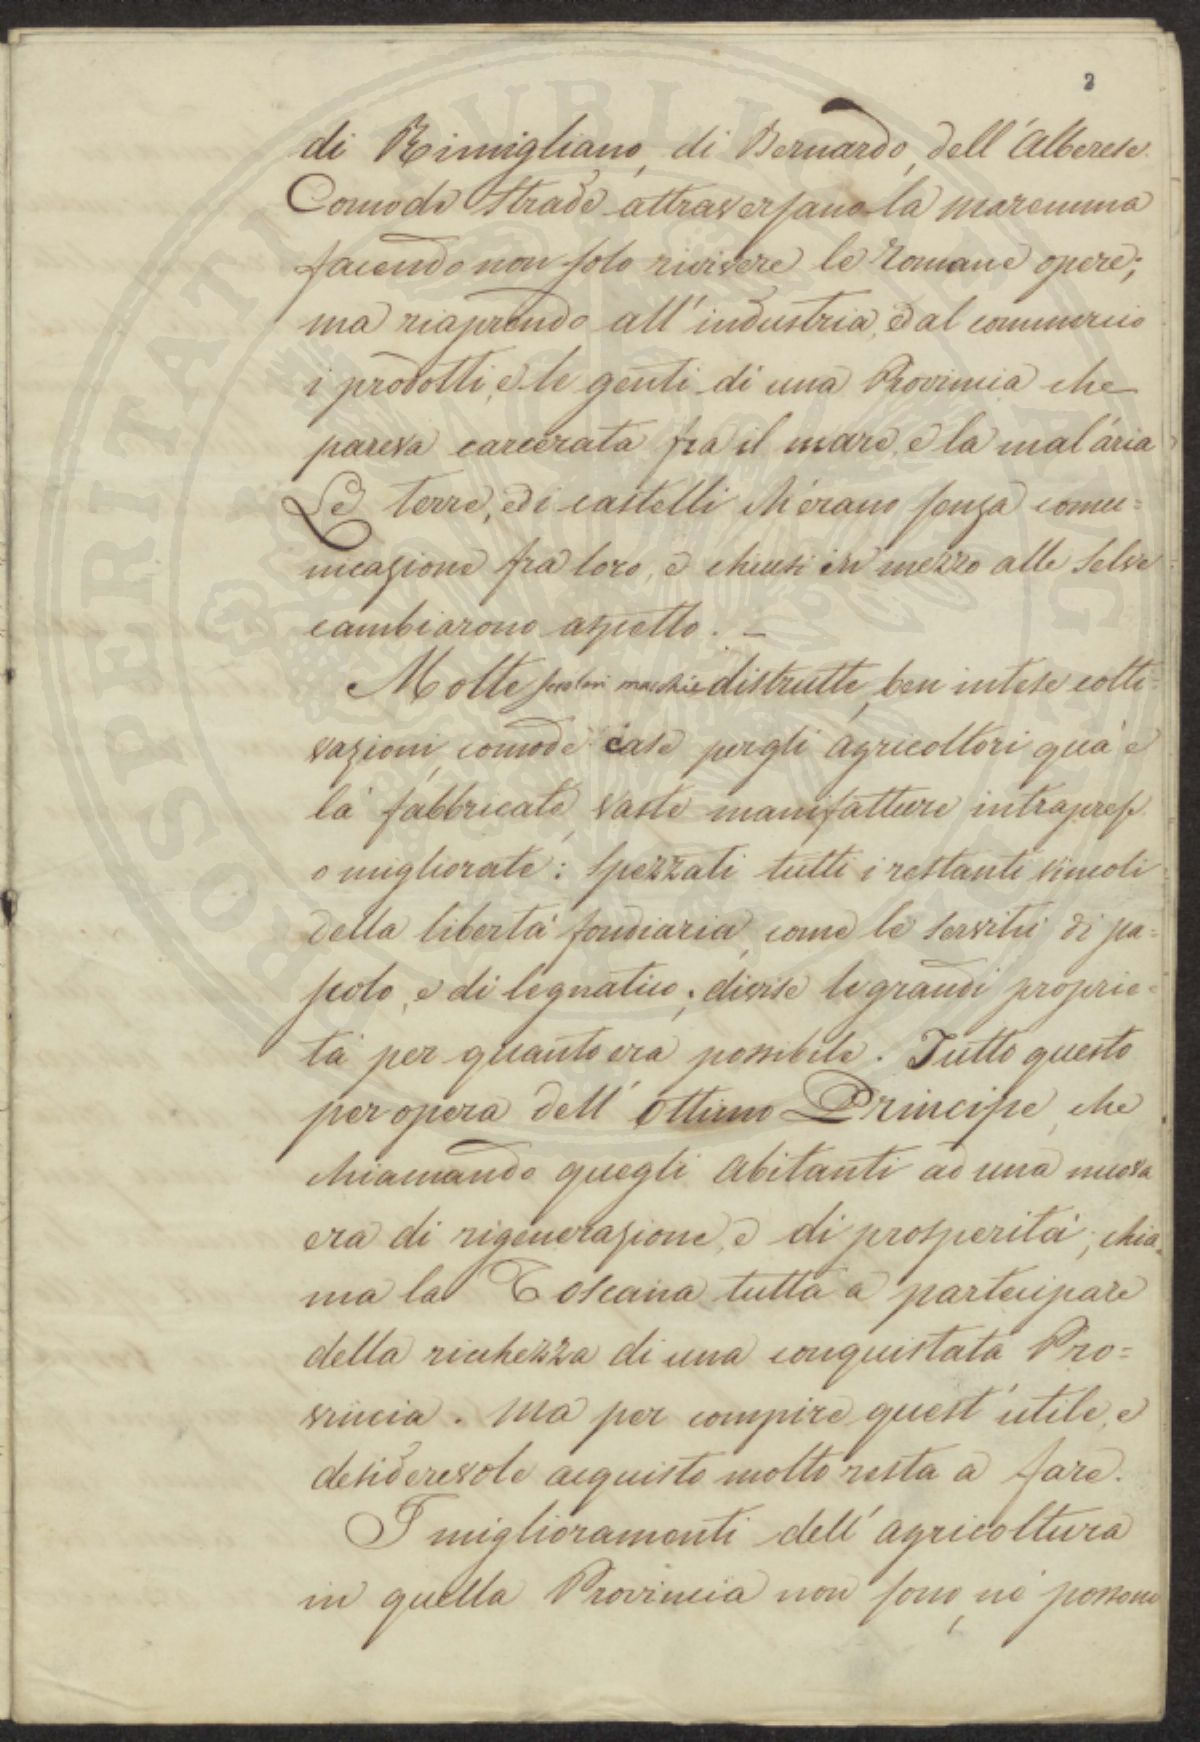 2
di Rimigliano, di Bernardo, dell'Alberese.
Comode Strade attraversano la maremma
facendo non solo rivivere le Romane opere;
ma riaprendo all'industria, ed al commercio
i prodotti, e le genti di una Provincia che
pareva carcerata fra il mare, e la mal'aria
Le terre, ed i castelli ch'erano senza comu=
nicazione fra loro, e chiusi in mezzo alle Selve
cambiarono aspetto. –
Molte macchie distrutte, ben intese colti=
vazioni, comode case per gli Agricoltori quà e
là fabbricate, vaste manifatture intraprese
o migliorate: Spezzati tutti i restanti vincoli
della libertà fondiaria, come le Servitù di pa=
scolo, e di legnatico; divise le grandi proprie=
tà per quanto era possibile. Tutto questo
per opera dell'Ottimo Principe, che
chiamando quegli Abitanti ad una nuova
era di rigenerazione, e di prosperità, chia=
ma la Toscana tutta a partecipare
della ricchezza di una conquistata Pro=
vincia. Ma per compire quest'utile, e
desiderevole acquisto molto resta a fare.
I miglioramenti dell'agricoltura
in quella Provincia non sono, nè possono
PROSPERITATI PUBLICAE